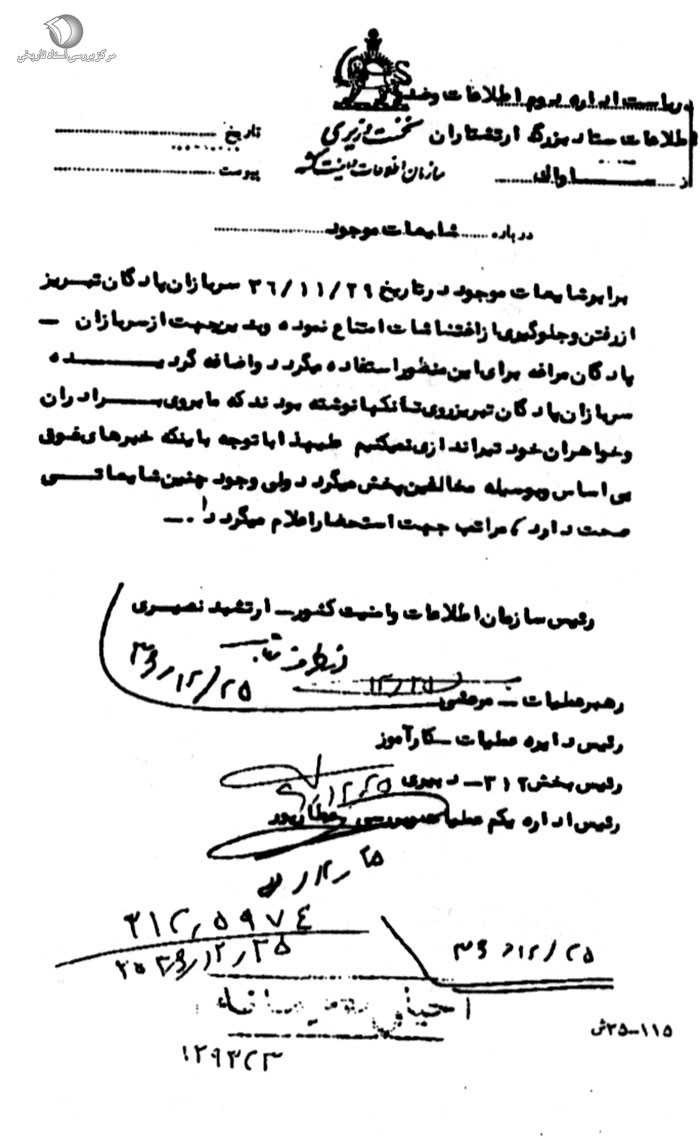 مرکز بررسی اسناد تاریخی
ریاست اداره دوم اطلاعات وضد
اطلاعات ستاد بزرگ ارتشتاران
نخست وزیری
تاریخ
از ساواک
سازمان اطلاعات و امنیت کشور
پیوست
درباره شایعات موجود
برابر شایعات موجود در تاریخ ۳۶/۱۱/۲۹ سربازان پادگان تبریز
از رفتن و جلوگیری از اغتشاشات امتناع نموده و بدین جهت از سربازان ـ
پادگان مراغه برای این منظور استفاده میگردد و اضافه گردیده
سربازان پادگان تبریز روی تانکها نوشته بودند که ما بروی برادران
و خواهران خود تیراندازی نمیکنیم علیهذا با توجه باینکه خبرهای فوق
بی اساس و بوسیله مخالفین پخش میگردد ولی وجود چنین شایعاتی
صحت دارد، مراتب جهت استحضار اعلام میگردد. ـ
رئیس سازمان اطلاعات و امنیت کشور ـ ارتشبد نصیری
۳۶/۱۲/۲۵
رهبر عملیات ـ مرعشی
۱۲/۲۵
رئیس دایره عملیات ـ کارآموز
رئیس بخش ۳۱۲ ـ دبیری
۱۲/۲۵
رئیس اداره یکم عملیات و بررسی ـ عطارپور
۱۲/۲۵
۳۱۲/۵۹۷۴
۳۶/۱۲/۲۵
۳۶/۱۲/۲۵
۱۱۵-۲۵ش